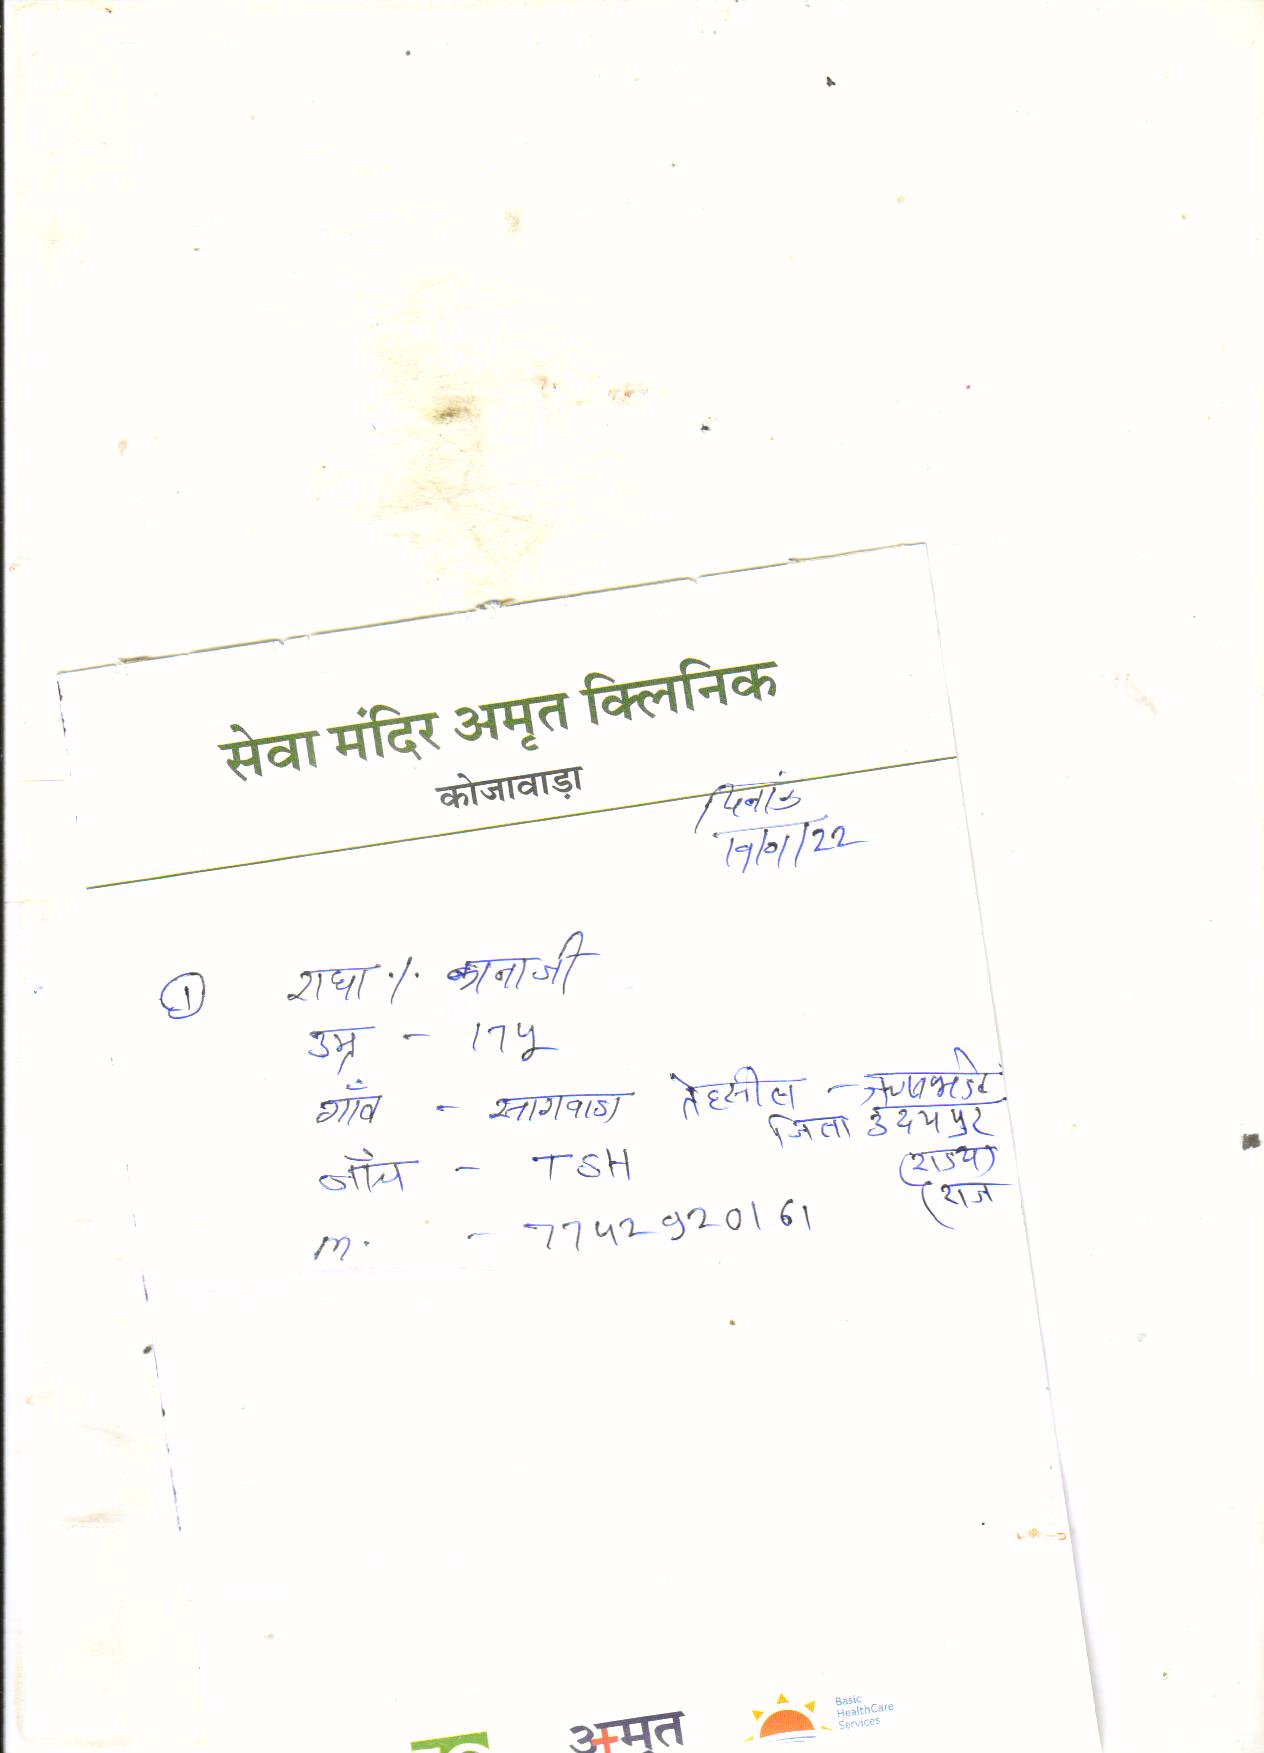 सेवा मंदिर अमृत क्लिनिक
कोजावाड़ा
दिनांक
19/01/22
① राधा ./. कानाजी
उम्र - 17 y
गाँव - सागवाडा तेहसील -
जिला उदयपुर
जाँच - TSH (राज्य)
(राज
m. - 7742920161
अमृत
Basic
HealthCare
Services